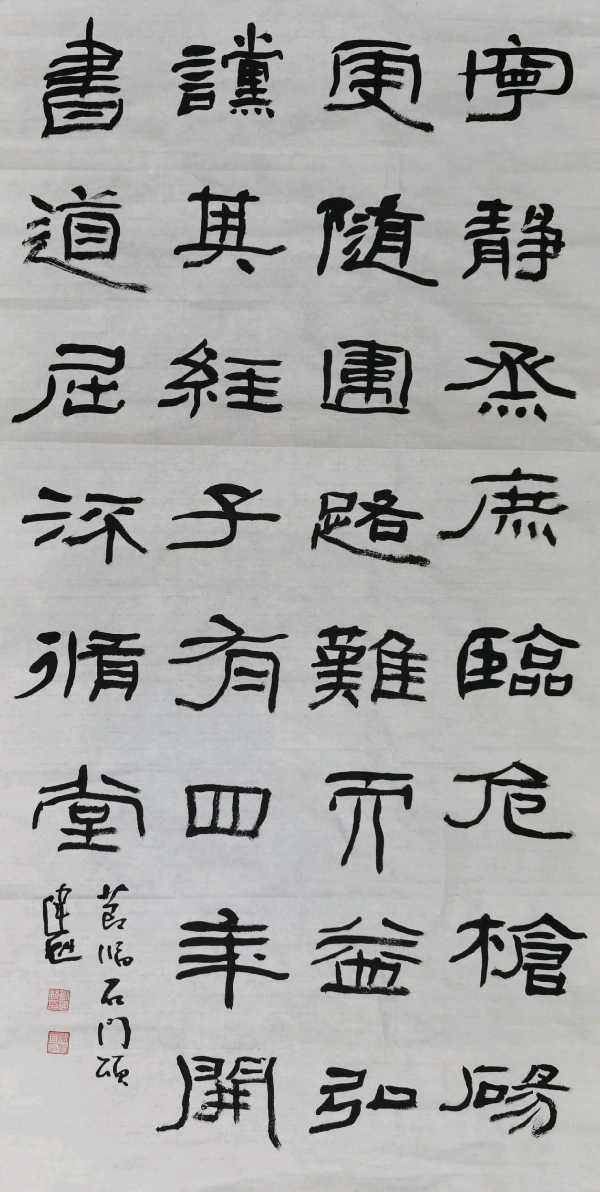 寧靜烝庶臨危槍碭
更隨圍路難而益弘
讜其經子有四年開
書道屈深循堂
節臨石門頌